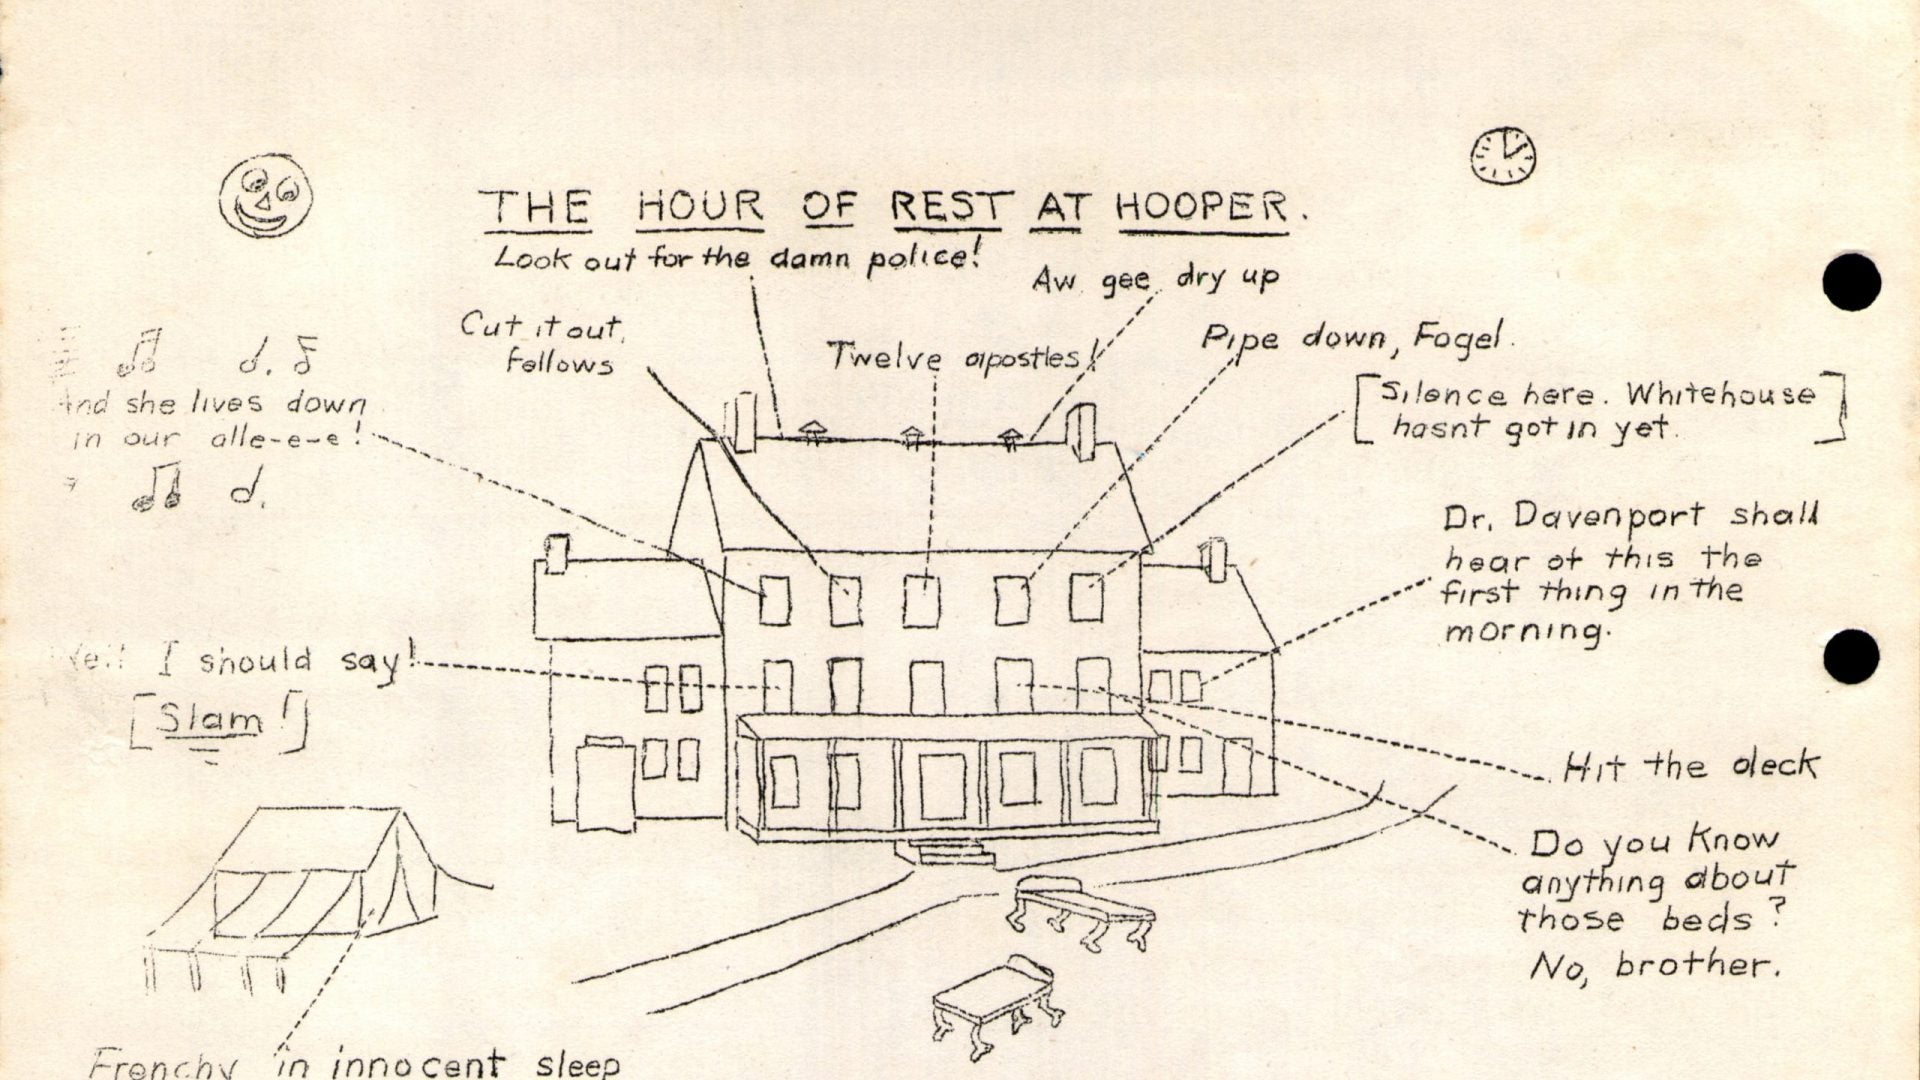 THE HOUR OF REST AT HOOPER.
Look out for the damn police!
Aw gee dry up
Cut it out,
fellows
Twelve apostles!
Pipe down, Fogel.
[Silence here. Whitehouse
hasnt got in yet.]
And she lives down
in our alle-e-e!
Dr. Davenport shall
hear of this the
first thing in the
morning.
I should say!
[Slam!]
Hit the deck
Do you Know
anything about
those beds?
No, brother.
Frenchy in innocent sleep